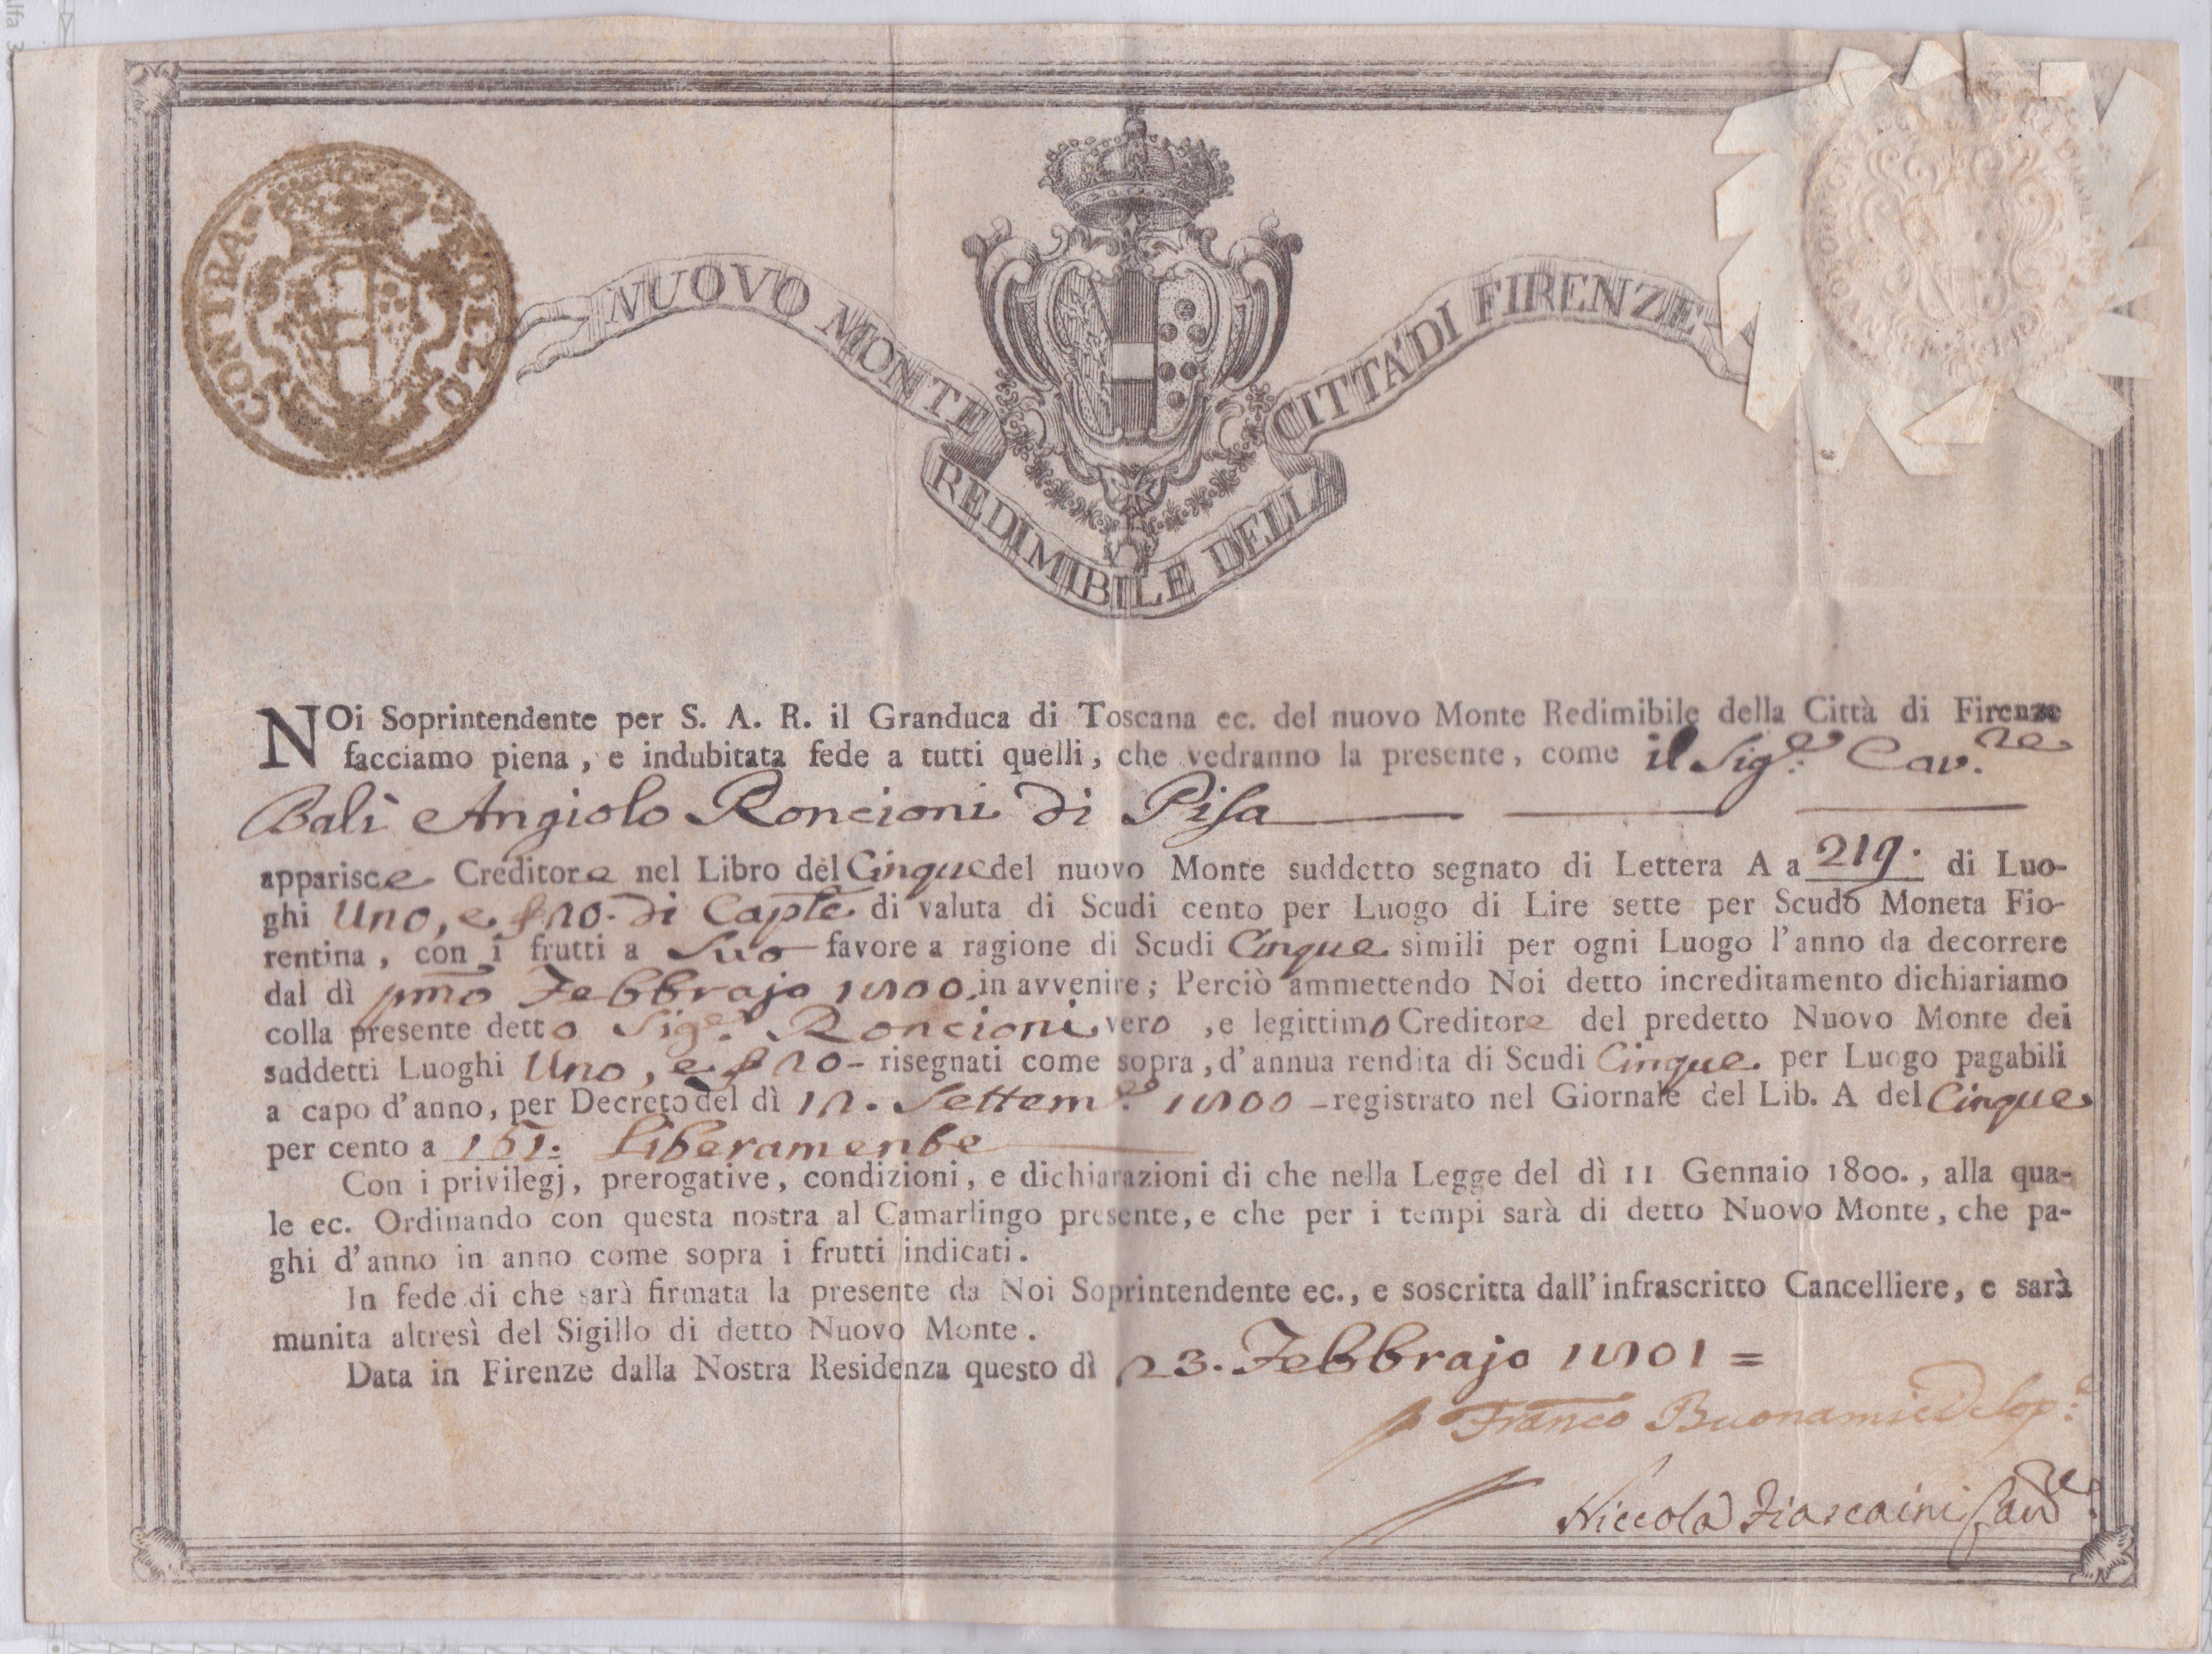 CONTRA-BOLLO
NUOVO MONTE REDIMIBILE DELLA CITTA' DI FIRENZE
NOi Soprintendente per S. A. R. il Granduca di Toscana ec. del nuovo Monte Redimibile della Città di Firenze
facciamo piena, e indubitata fede a tutti quelli, che vedranno la presente, come il Sig.e Cav.re
Balì Angiolo Roncioni di Pisa
apparisce Creditore nel Libro del Cinque del nuovo Monte suddetto segnato di Lettera A a 219. di Luo-
ghi Uno, e 20. di Caple di valuta di Scudi cento per Luogo di Lire sette per Scudo Moneta Fio-
rentina, con i frutti a Suo favore a ragione di Scudi Cinque simili per ogni Luogo l'anno da decorrere
dal dì pmo Febbrajo 1800. in avvenire; Perciò ammettendo Noi detto increditamento dichiariamo
colla presente detto Sig.e Roncioni vero, e legittimo Creditore del predetto Nuovo Monte dei
suddetti Luoghi Uno, e 20- risegnati come sopra, d'annua rendita di Scudi Cinque per Luogo pagabili
a capo d'anno, per Decreto del dì 12. Settem.e 1800 - registrato nel Giornale del Lib. A del Cinque
per cento a 151. Liberamente
Con i privilegj, prerogative, condizioni, e dichiarazioni di che nella Legge del dì 11 Gennaio 1800., alla qua-
le ec. Ordinando con questa nostra al Camarlingo presente, e che per i tempi sarà di detto Nuovo Monte, che pa-
ghi d'anno in anno come sopra i frutti indicati.
In fede di che sarà firmata la presente da Noi Soprintendente ec., e soscritta dall'infrascritto Cancelliere, e sarà
munita altresì del Sigillo di detto Nuovo Monte.
Data in Firenze dalla Nostra Residenza questo dì 23. Febbrajo 1801 =
Franco Buonamici
Niccola